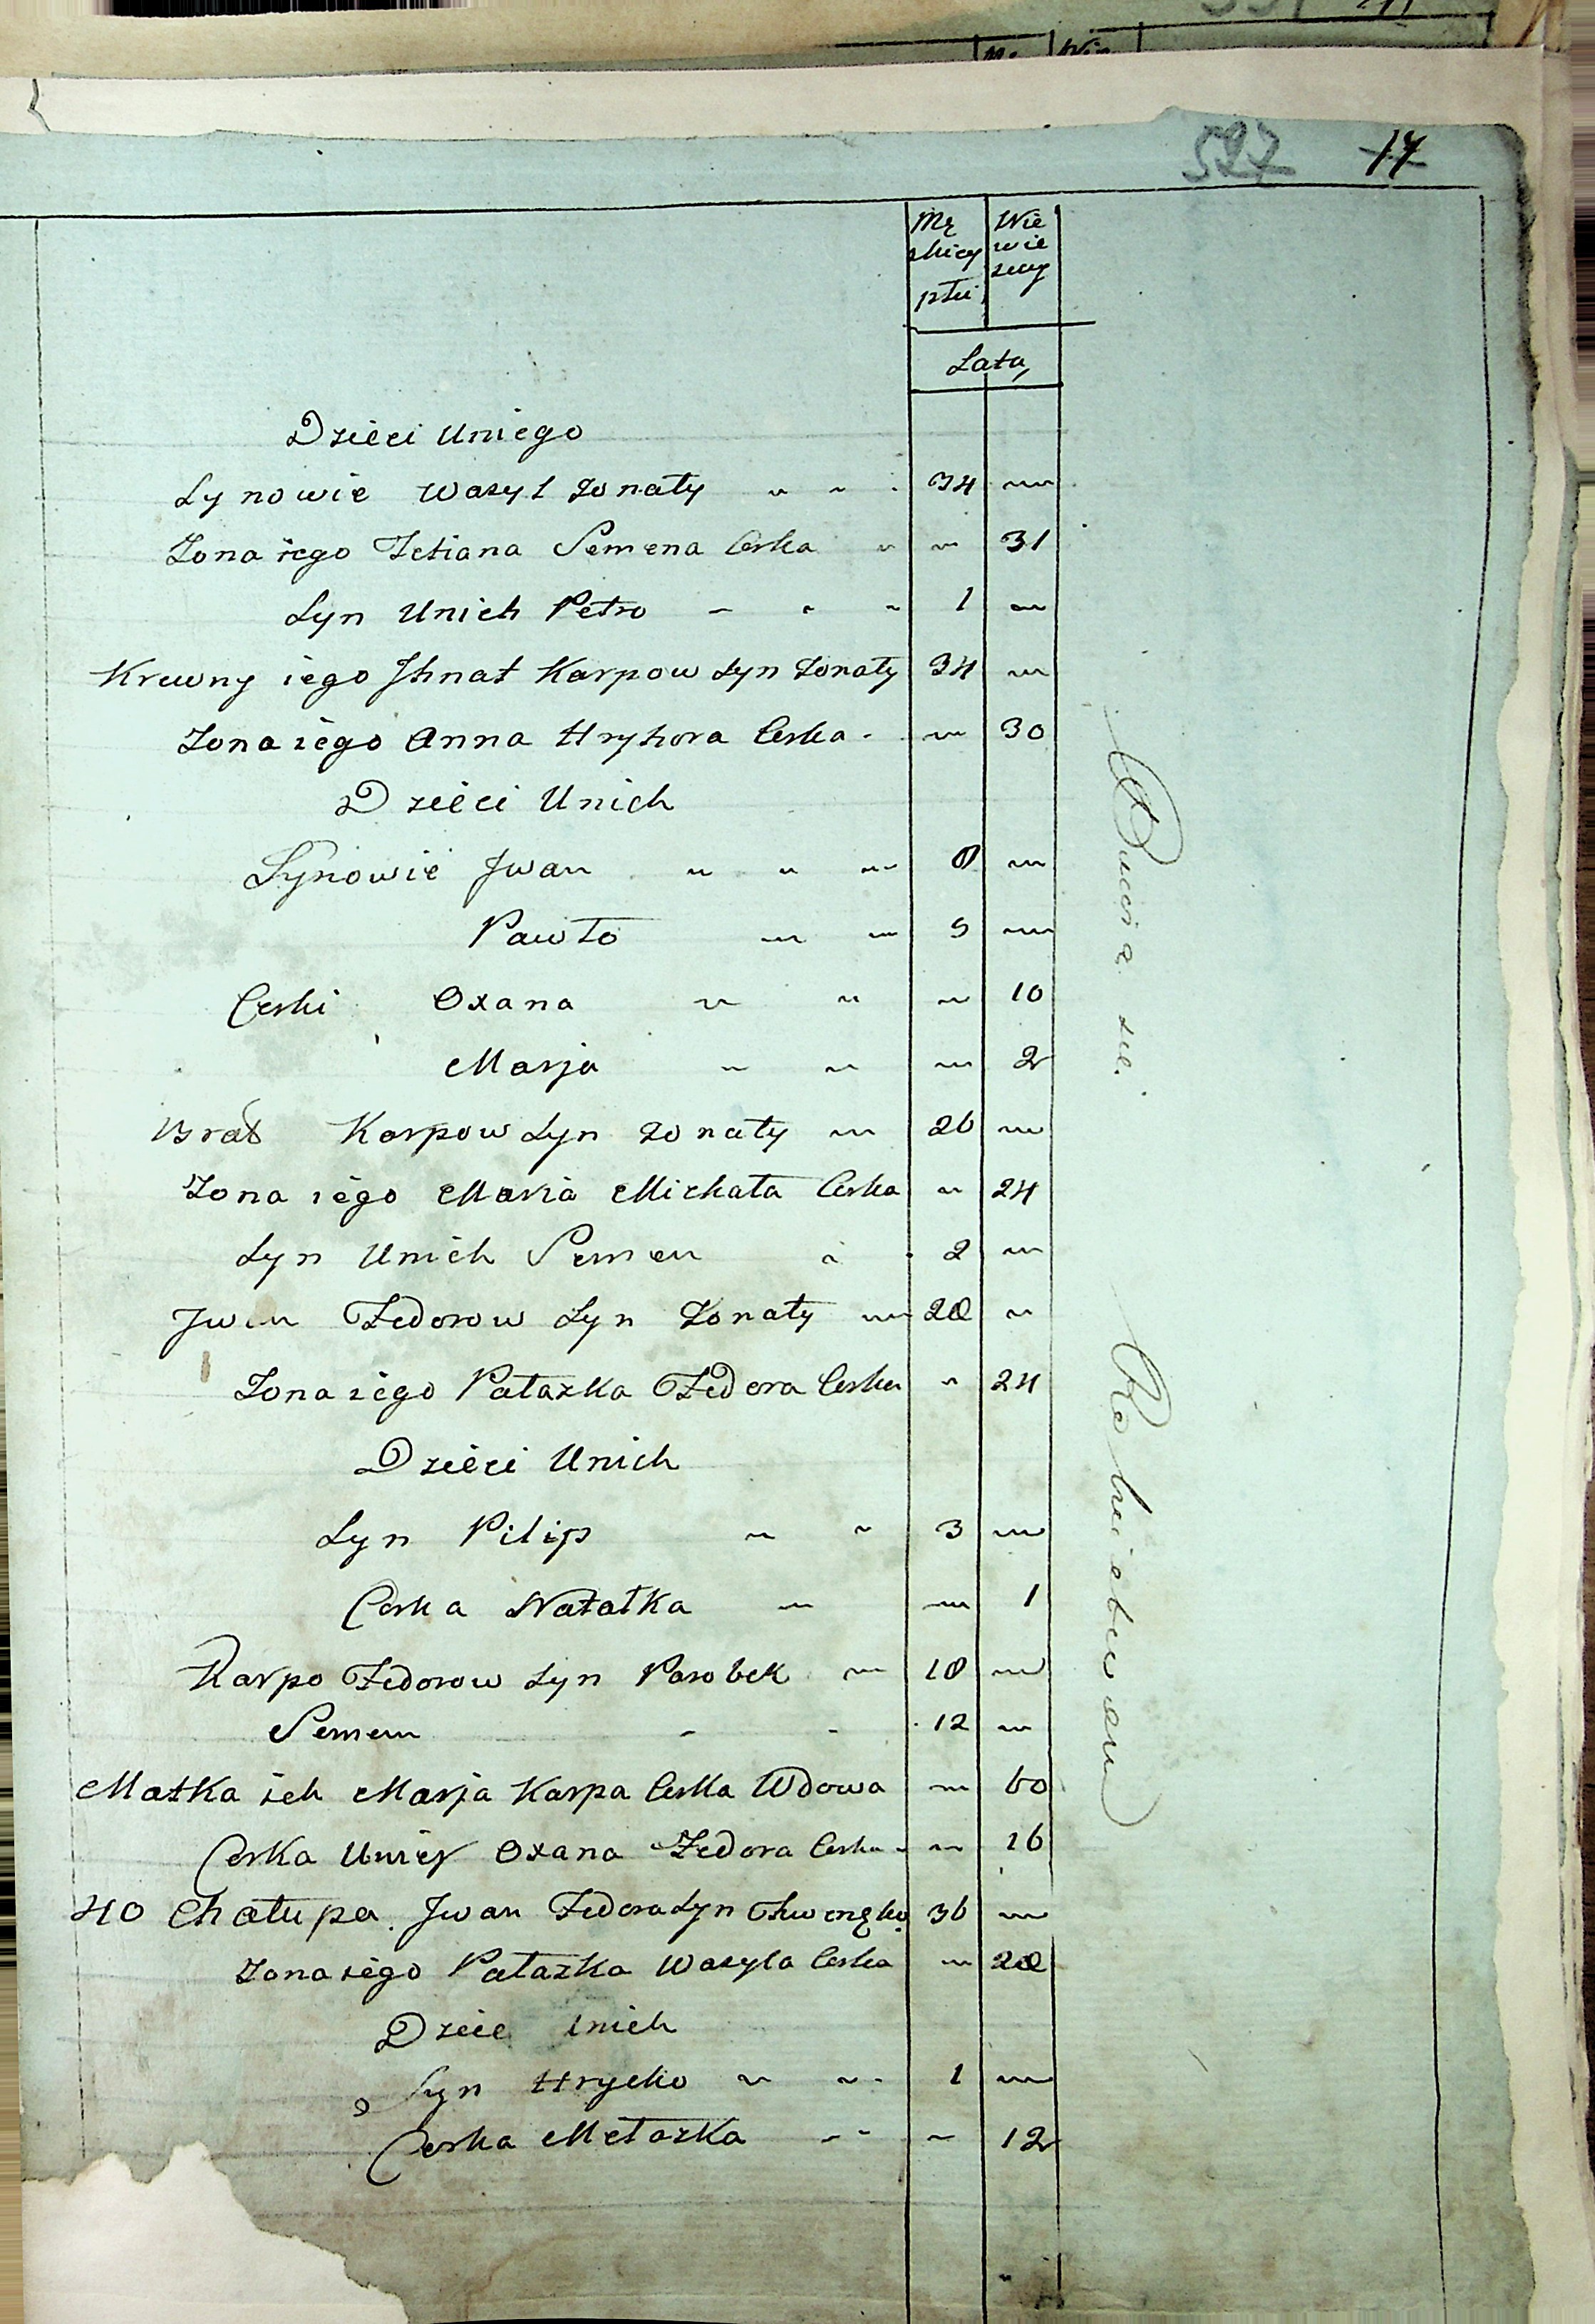 527 17
Mę Nie
skiey wie
płci sciey
Lata
Dzieci Uniego
Synowie Wasyl Zonaty 34
Zona iego Tetiana Semena Corka 31
Syn Unich Petro 1
Krewny iego Ihnat Karpow Syn Zonaty 34
Zona iego Anna Hryhora Corka 30
Dzieci Unich
Synowie Jwan 8
Pawło 5
Corki Oxana 10
Marja 2
Brat Karpow Syn Zonaty 26
Zona iego Maria Michała Corka 24
Syn Unich Semen 2
Jwan Fedorow Syn Zonaty 28
Zona iego Pałazka Fedora Corka 24
Dzieci Unich
Syn Pilip 3
Corka Natałka 1
Karpo Fedorow Syn Parobek 18
Semen 12
Matka ich Marja Karpa Corka Wdowa 60
Corka Uniey Oxana Fedora Corka 16
40 Chałupa Jwan Fedora Syn 36
Zona iego Pałazka Wasyla Corka 28
Dziec Unich
Syn Hrycko 1
Corka Metazka 12